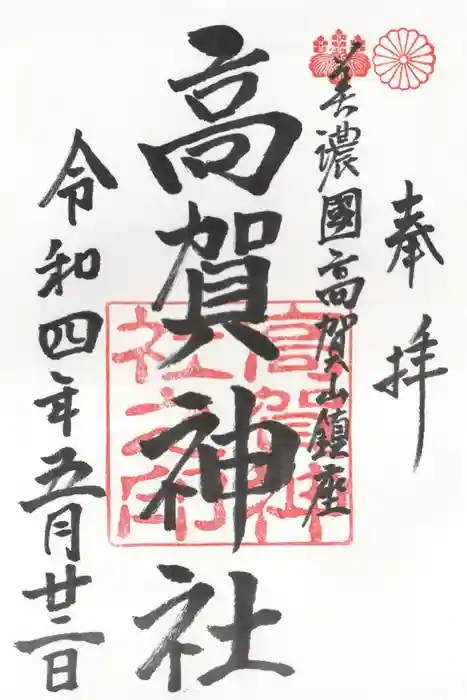 奉拝
美濃國高賀山鎮座
高賀神社
令和四年五月廿二日
高賀神社之印